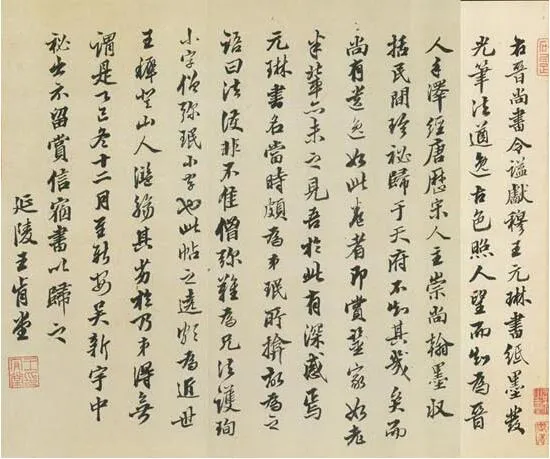 右晉尚書令謚獻穆王元琳書紙墨發
光筆法遒逸古色照人望而知為晉
人手澤經唐歷宋人主崇尚翰墨收
括民間珍秘歸于天府不知其幾矣而
尚有遺逸如此卷者即賞鑒家如老
米輩亦未之見吾於此有深感焉
元琳書名當時頗為弟珉所揜故為之
語曰法護非不佳僧彌難為兄法護珣
小字僧彌珉小字也此帖之遠為近世
王穉登山人濫觴其劣於乃弟得無
謂是乙巳冬十二月至新安吳新宇中
秘出示留賞信宿書以歸之
延陵王肯堂